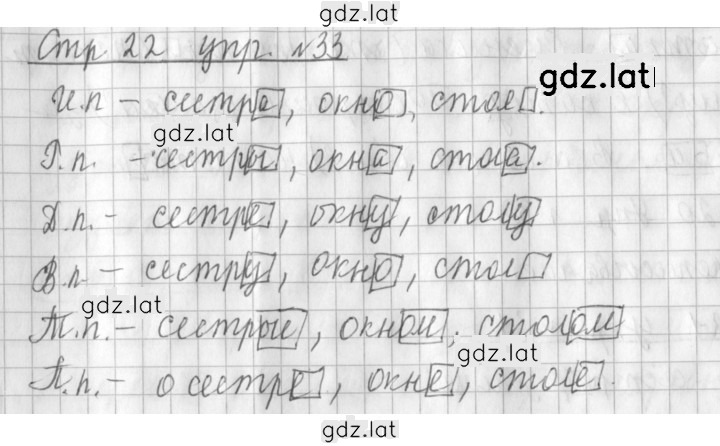 gdz.lat
Стр 22 упр. №33
gdz.lat
И.п – сестра, окно, стол.
gdz.lat
Р.п. – сестры, окна, стола.
Д.п. – сестре, окну, столу
В.п – сестру, окно, стол
gdz.lat
Т.п. – сестрой, окном, столом
gdz.lat
П.п. – о сестре, окне, столе.
gdz.lat